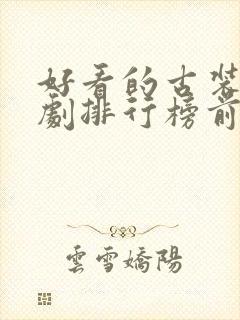 好看的古裝
劇排行榜前
雲雪嬌陽